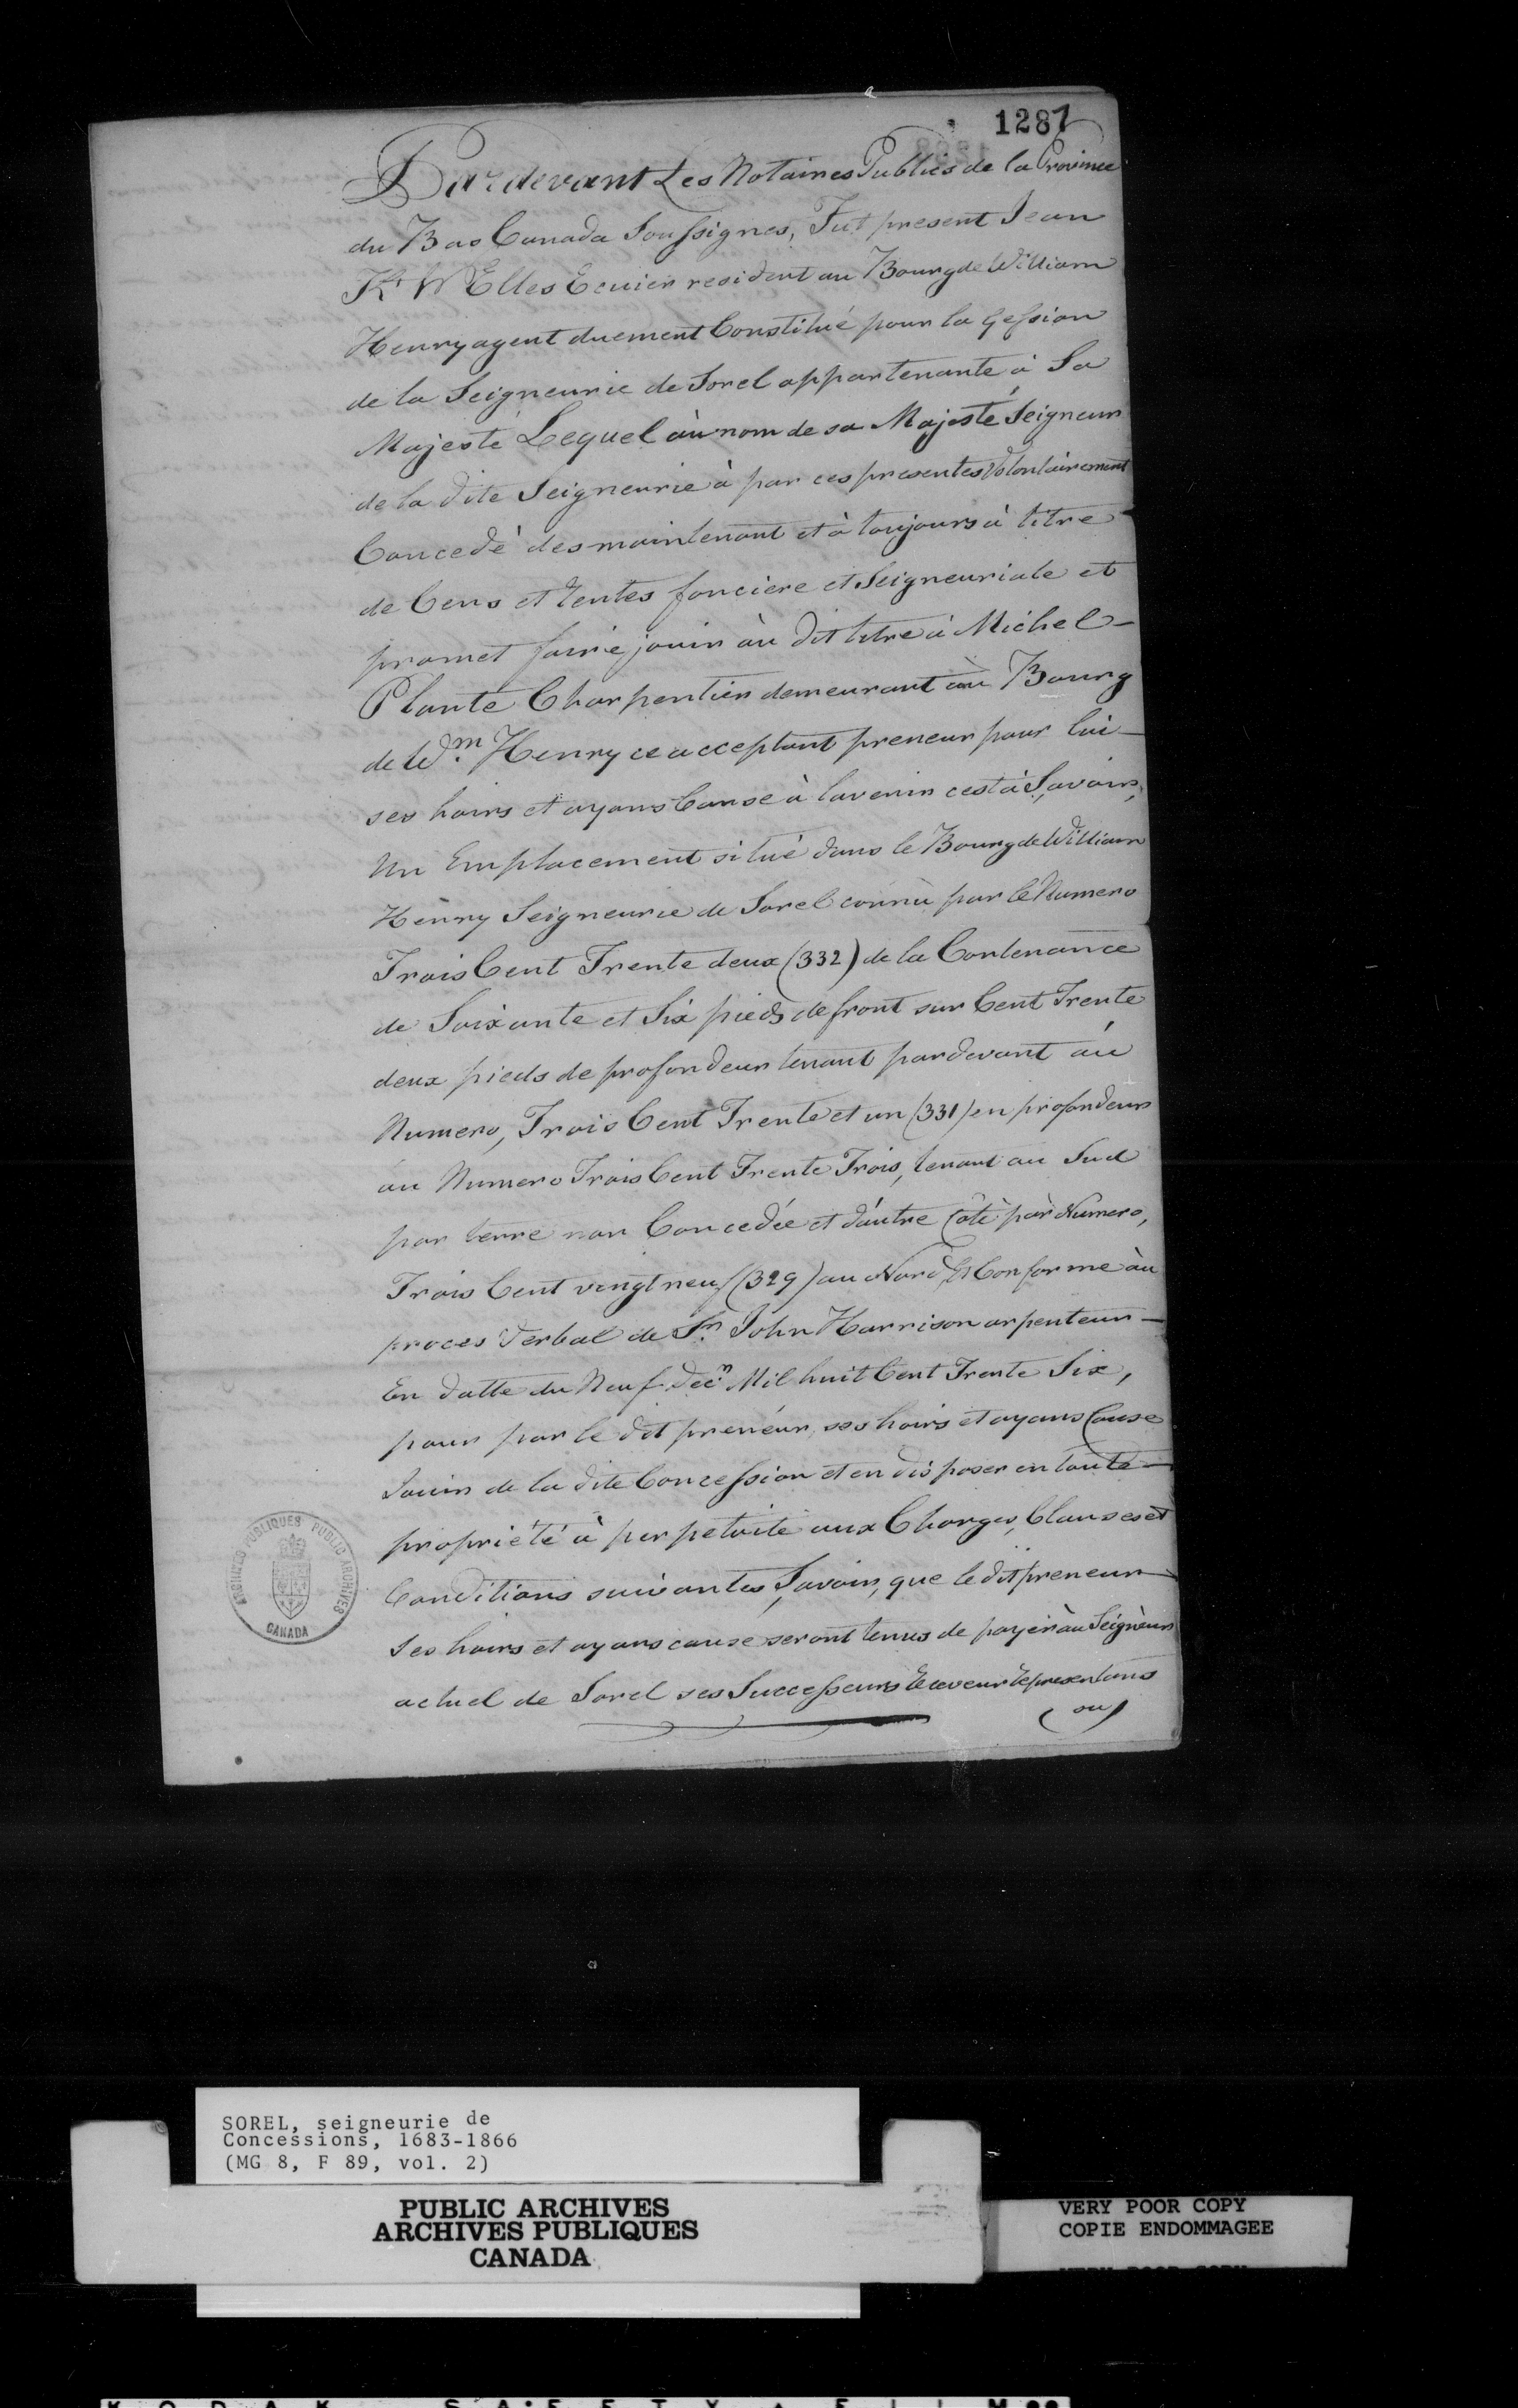 1287
Pardevant Les Notaires Publics de la Province
du Bas Canada Soussignes, Fut present Jean
Kt Welles Ecuier resident au Bourg de William
Henry agent duement Constitué pour la Gession
de la Seigneurie de Sorel appartenante à Sa
Majesté Lequel àu nom de sa Majesté Seigneur
de la dite Seigneurie à par ces presentes Volontairement
Concedè des maintenant et à toujours à titre
de Cens et rentes fonciere et Seigneuriale et
promet faire jouir àu dit titre à Michel
Planté Charpentier demeurant àu Bourg
de Wm. Henry ce acceptant preneur pour lui
ses hoirs et ayans Cause à lavenir cest à Savoir,
Un Emplacement situé dans le Bourg de William
Henry Seigneurie de Sorel connù par le Numero
Trois Cent Trente deux (332) de la Contenance
de Soixante et Six pieds de front sur Cent Trente
deux pieds de profondeur tenant pardevant áu
Numero, Trois Cent Trente et un (331) en profondeur
au Numero Trois Cent Trente Trois, tenant au Sud
par terre non Concedée et dáutre Côté pàr Numero,
Trois Cent vingt neuf (329) au Nord, Conforme àu
proces Verbal de Sr. John Harrison arpenteur
En datte du Neuf Decr. Mil huit Cent Trente Six,
pour par le dit preneur, ses hoirs et ayans Cause
Jouir de la dite Concession et en disposer en toute
propriété à perpetuité aux Charges, Clauses et
Conditions suivantes, Savoir, que le dit preneur
Ses hoirs et ayans cause seront tenus de payer àu Seigneur
actuel de Sorel ses Successeurs Receveur Representans
ou
ARCHIVES PUBLIQUES PUBLIC ARCHIVES
CANADA
SOREL, seigneurie de
Concessions, 1683-1866
(MG 8, F 89, vol. 2)
PUBLIC ARCHIVES
ARCHIVES PUBLIQUES
CANADA
VERY POOR COPY
COPIE ENDOMMAGEE
VERY POOR COPY
KODAK SAFETY FILM